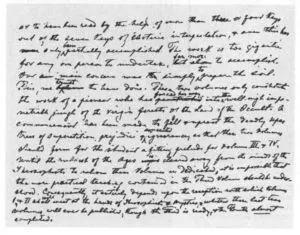 as to have been read by the help of more than three or four keys
out of the seven Keys of Esoteric interpretation, & even this has
been only partially accomplished. The work is too gigantic
for any one person to undertake, far more to accomplish.
Our main concern was simply to prepare the soil.
This, we trust to have done. These two volumes only constitute
the work of a pioneer who has forced his way into the well-nigh impe-
netrable jungle of the virgin forests of the land of the Occult. A
commencement has been made to fell & uproot the deadly upas
trees of superstition, prejudice & conceited ignorance, so that these two volumes
should form for the student a fitting prelude for Volumes III & IV.
Until the rubbish of the Ages is cleared away from the minds of the
Theosophists to whom these Volumes are dedicated, it is impossible that
the more practical teaching contained in the Third Volume should be under-
stood. Consequently, it entirely depends upon the reception with which Volumes
I & II shall meet at the hands of Theosophists & Mystics, whether these last two
volumes will ever be published, though the third is ready, & the fourth almost
completed.